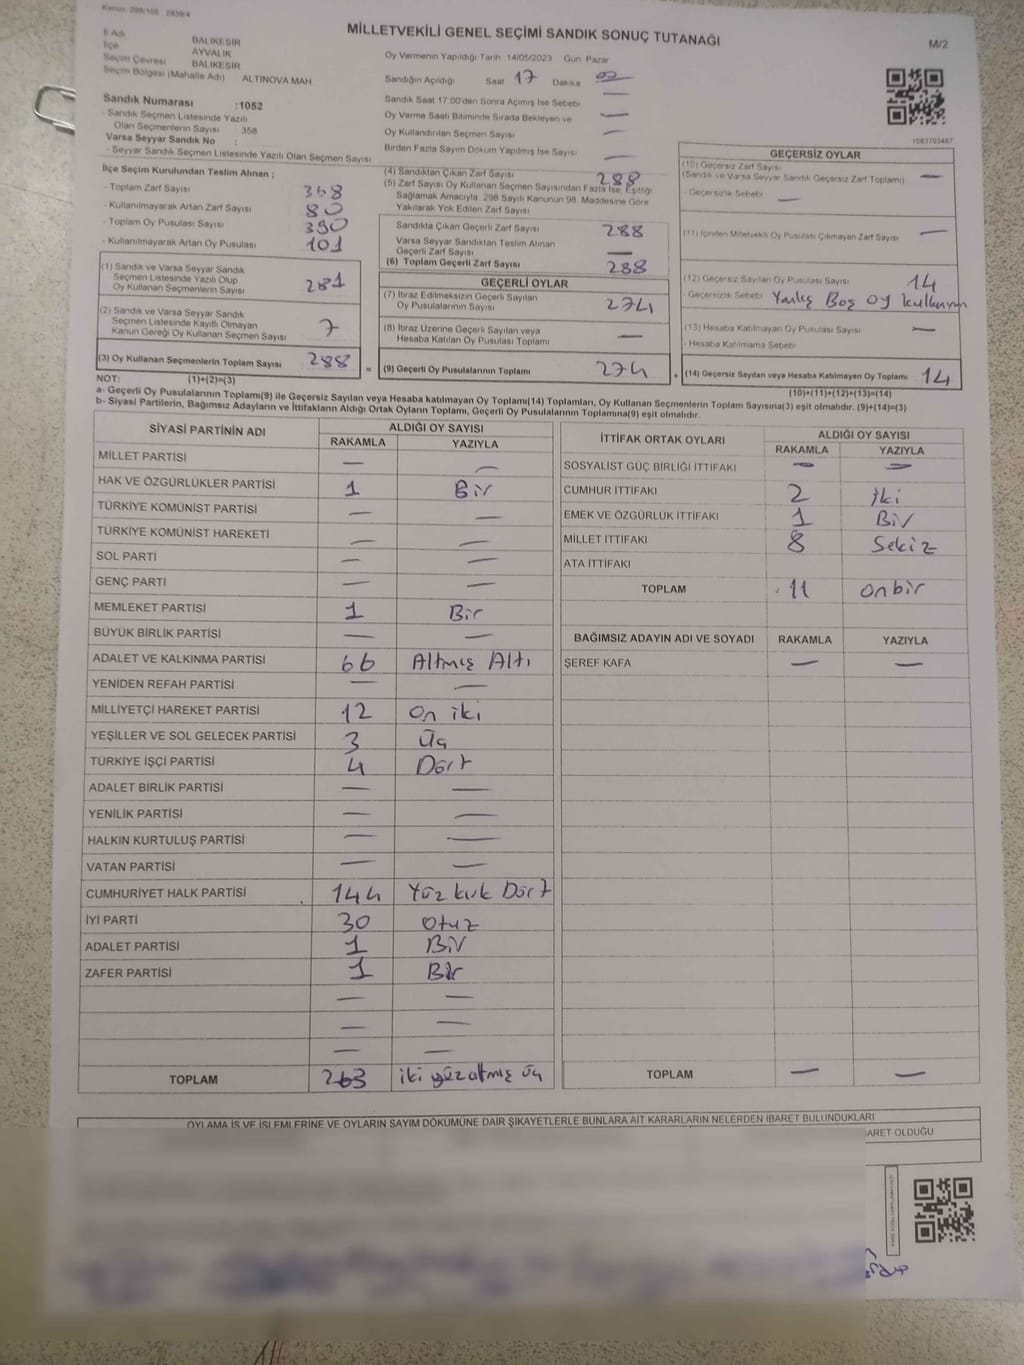 MİLLETVEKİLİ GENEL SEÇİMİ SANDIK SONUÇ TUTANAĞI
M/2
İl Adı BALIKESİR
İlçe AYVALIK
Seçim Çevresi BALIKESİR
Seçim Bölgesi (Mahalle Adı) ALTINOVA MAH
Oy Vermenin Yapıldığı Tarih 14/05/2023 Gün Pazar
Sandığın Açıldığı Saat 17 Dakika 02
Sandık Saat 17.00'den Sonra Açımış İse Sebebi —
Oy Verme Saati Bitiminde Sırada Bekleyen ve —
Oy Kullandırılan Seçmen Sayısı —
Birden Fazla Sayım Döküm Yapılmış İse Sayısı —
1083703487
Sandık Numarası :1052
- Sandık Seçmen Listesinde Yazılı
Olan Seçmenlerin Sayısı : 358
Varsa Seyyar Sandık No :
- Seyyar Sandık Seçmen Listesinde Yazılı Olan Seçmen Sayısı
İlçe Seçim Kurulundan Teslim Alınan ;
- Toplam Zarf Sayısı 368
- Kullanılmayarak Artan Zarf Sayısı 80
- Toplam Oy Pusulası Sayısı 390
- Kullanılmayarak Artan Oy Pusulası 101
(1) Sandık ve Varsa Seyyar Sandık
Seçmen Listesinde Yazılı Olup
Oy Kullanan Seçmenlerin Sayısı 281
(2) Sandık ve Varsa Seyyar Sandık
Seçmen Listesinde Kayıtlı Olmayan
Kanun Gereği Oy Kullanan Seçmen Sayısı 7
(3) Oy Kullanan Seçmenlerin Toplam Sayısı 288 =
(4) Sandıktan Çıkan Zarf Sayısı 288
(5) Zarf Sayısı Oy Kullanan Seçmen Sayısından Fazla İse, Eşitliği
Sağlamak Amacıyla, 298 Sayılı Kanunun 98. Maddesine Göre
Yakılarak Yok Edilen Zarf Sayısı
Sandıkta Çıkan Geçerli Zarf Sayısı 288
Varsa Seyyar Sandıktan Teslim Alınan
Geçerli Zarf Sayısı —
(6) Toplam Geçerli Zarf Sayısı 288
GEÇERLİ OYLAR
(7) İtiraz Edilmeksizin Geçerli Sayılan
Oy Pusulalarının Sayısı 274
(8) İtiraz Üzerine Geçerli Sayılan veya
Hesaba Katılan Oy Pusulası Toplamı —
(9) Geçerli Oy Pusulalarının Toplamı 274 +
GEÇERSİZ OYLAR
(10) Geçersiz Zarf Sayısı
(Sandık ve Varsa Seyyar Sandık Geçersiz Zarf Toplamı) —
- Geçersizlik Sebebi —
(11) İçinden Milletvekili Oy Pusulası Çıkmayan Zarf Sayısı —
(12) Geçersiz Sayılan Oy Pusulası Sayısı 14
- Geçersizlik Sebebi Yanlış Boş oy kullanım
(13) Hesaba Katılmayan Oy Pusulası Sayısı —
- Hesaba Katılmama Sebebi
(14) Geçersiz Sayılan veya Hesaba Katılmayan Oy Toplamı 14
NOT: (1)+(2)=(3) (10)+(11)+(12)+(13)=(14)
a- Geçerli Oy Pusulalarının Toplamı(9) ile Geçersiz Sayılan veya Hesaba katılmayan Oy Toplamı(14) Toplamları, Oy Kullanan Seçmenlerin Toplam Sayısına(3) eşit olmalıdır. (9)+(14)=(3)
b- Siyasi Partilerin, Bağımsız Adayların ve İttifakların Aldığı Ortak Oyların Toplamı, Geçerli Oy Pusulalarının Toplamına(9) eşit olmalıdır.
SİYASİ PARTİNİN ADI ALDIĞI OY SAYISI
RAKAMLA YAZIYLA
MİLLET PARTİSİ — —
HAK VE ÖZGÜRLÜKLER PARTİSİ 1 Bir
TÜRKİYE KOMÜNİST PARTİSİ — —
TÜRKİYE KOMÜNİST HAREKETİ — —
SOL PARTİ — —
GENÇ PARTİ — —
MEMLEKET PARTİSİ 1 Bir
BÜYÜK BİRLİK PARTİSİ — —
ADALET VE KALKINMA PARTİSİ 66 Altmış Altı
YENİDEN REFAH PARTİSİ — —
MİLLİYETÇİ HAREKET PARTİSİ 12 On iki
YEŞİLLER VE SOL GELECEK PARTİSİ 3 Üç
TÜRKİYE İŞÇİ PARTİSİ 4 Dört
ADALET BİRLİK PARTİSİ — —
YENİLİK PARTİSİ — —
HALKIN KURTULUŞ PARTİSİ — —
VATAN PARTİSİ — —
CUMHURİYET HALK PARTİSİ 144 Yüz kırk Dört
İYİ PARTİ 30 Otuz
ADALET PARTİSİ 1 Bir
ZAFER PARTİSİ 1 Bir
— —
— —
— —
TOPLAM 263 iki yüz altmış üç
İTTİFAK ORTAK OYLARI ALDIĞI OY SAYISI
RAKAMLA YAZIYLA
SOSYALİST GÜÇ BİRLİĞİ İTTİFAKI — —
CUMHUR İTTİFAKI 2 iki
EMEK VE ÖZGÜRLÜK İTTİFAKI 1 Bir
MİLLET İTTİFAKI 8 Sekiz
ATA İTTİFAKI
TOPLAM 11 onbir
BAĞIMSIZ ADAYIN ADI VE SOYADI RAKAMLA YAZIYLA
ŞEREF KAFA — —
TOPLAM — —
OYLAMA İŞ VE İŞLEMLERİNE VE OYLARIN SAYIM DÖKÜMÜNE DAİR ŞİKAYETLERLE BUNLARA AİT KARARLARIN NELERDEN İBARET BULUNDUKLARI
İBARET OLDUĞU